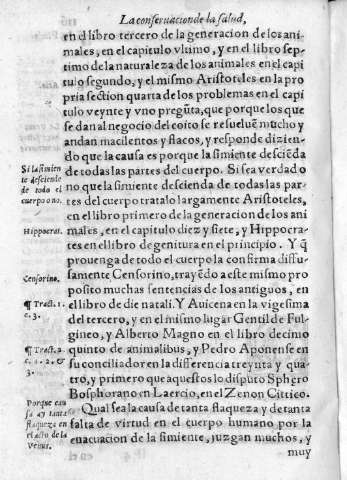 La conseruacion de la salud,
en el libro tercero de la generacion de los ani
males, en el capitulo vltimo, y en el libro sep
timo de la naturaleza de los animales en el capi
tulo segundo, y el mismo Aristoteles en la pro
pria section quarta de los problemas en el capi
tulo veynte y vno pregūta, que porque los que
se dan al negocio del coito se resueluē mucho y
andan macilentos y flacos, y responde dizien-
do que la causa es porque la simiente desciēda
de todas las partes del cuerpo. Si sea verdad o
no que la simiente descienda de todas las par
tes del cuerpo tratalo largamente Aristoteles,
en el libro primero de la generacion de los ani
males, en el capitulo diez y siete, y Hippocra-
tes en el libro de genitura en el principio. Y q̄
prouenga de todo el cuerpo la confirma diffu-
samente Censorino, trayēdo a este mismo pro
posito muchas sentencias de los antiguos, en
el libro de die natali. Y Auicena en la vigesima
del tercero, y en el mismo lugar Gentil de Ful-
gineo, y Alberto Magno en el libro decimo
quinto de animalibus, y Pedro Aponense en
su conciliador en la differencia treynta y qua-
tro, y primero que aquestos lo disputo Sphero
Bosphorano en Laercio, en el Zenon Cittico.
Qual sea la causa de tanta flaqueza y de tanta
falta de virtud en el cuerpo humano por la
euacuacion de la simiente, juzgan muchos, y
muy
Si la simien
te desciende
de todo el
cuerpo o no.
Hippocrat.
Censorino.
¶ Tract. 1.
c. 3.
¶ Tract. 2
c. 1. 2. &
3.
Porque cau
sa ay tanta
flaqueza en
el acto de la
Venus.